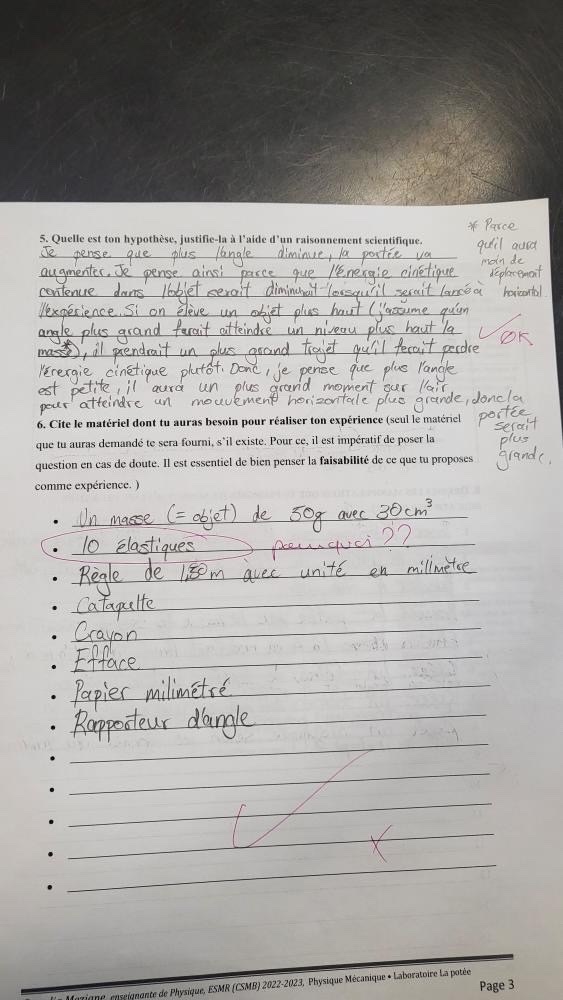 5. Quelle est ton hypothèse, justifie-la à l'aide d'un raisonnement scientifique.
Je pense que plus l'angle diminue, la portée va
augmenter. Je pense ainsi parce que l'énergie cinétique
contenue dans l'objet serait diminuait lorsqu'il serait lancé à
l'expérience. Si on élève un objet plus haut (j'assume qu'un
angle plus grand ferait atteindre un niveau plus haut la
masse*), il prendrait un plus grand trajet qu'il ferait perdre
l'énergie cinétique plutôt. Donc, je pense que plus l'angle
est petite, il aura un plus grand moment sur l'air
pour atteindre un mouvement horizontale plus grande, donc la
portée
serait
plus
grande.
* Parce
qu'il aura
moin de
déplacement
horizontal.
OK
6. Cite le matériel dont tu auras besoin pour réaliser ton expérience (seul le matériel
que tu auras demandé te sera fourni, s'il existe. Pour ce, il est impératif de poser la
question en cas de doute. Il est essentiel de bien penser la faisabilité de ce que tu proposes
comme expérience. )
• Un masse (= objet) de 50g avec 30cm³
• 10 élastiques pourquoi ??
• Règle de m avec unité en milimètre
• Catapulte
• Crayon
• Efface
• Papier milimétré
• Rapporteur d'angle
enseignante de Physique, ESMR (CSMB) 2022-2023, Physique Mécanique • Laboratoire La potée
Page 3